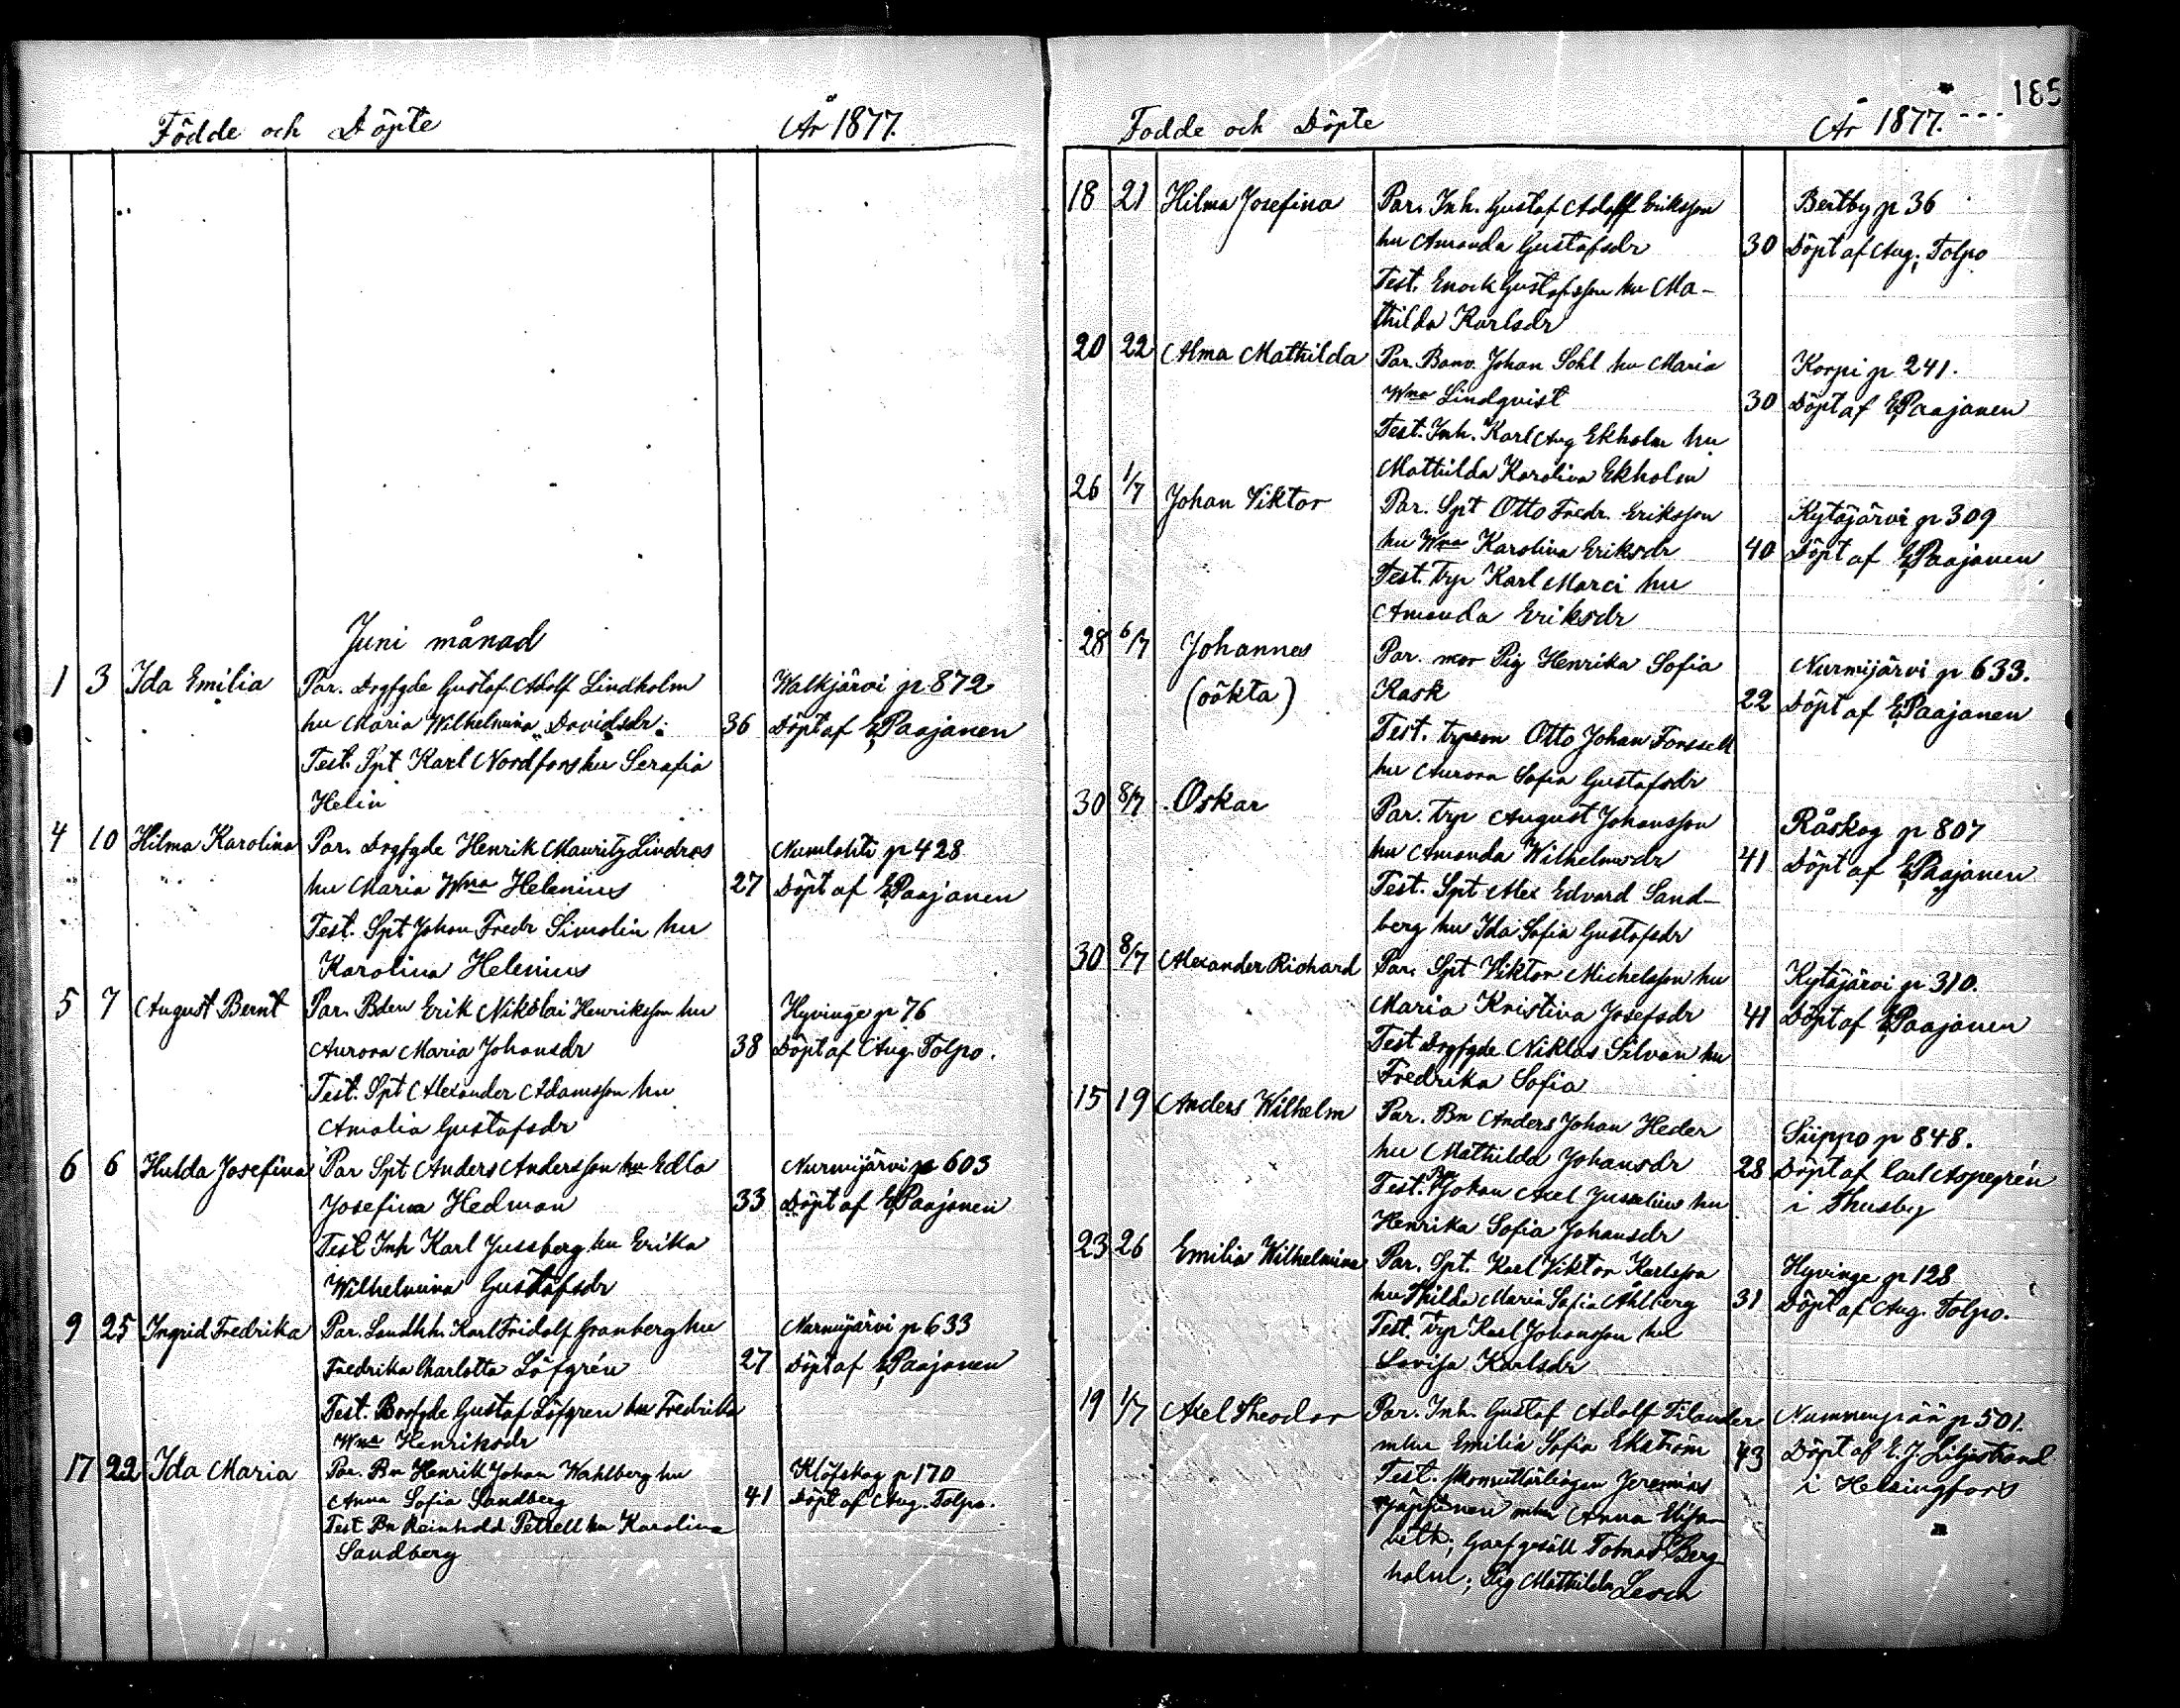 Födde och Döpte År 1877.
Juni månad
1 3 Ida Emilia Par. Drgfgde Gustaf Adolf Lindholm Walkjärvi p 872
hu Maria Wilhelmina Davidsdr. 36 Döpt af E Paajanen
Test. Spt Karl Nordfors hu Serafia
Helin
4 10 Hilma Karolina Par. Drgfgde Henrik Mauritz Lindros Numlahti p 428
hu Maria Wma Helenius 27 Döpt af E Paajanen
Test. Spt Johan Fredr Simolin hu
Karolina Helenius
5 7 August Bernt Par. Bden Erik Nikolai Henriksson hu Hyvinge p 76
Aurora Maria Johansdr 38 Döpt af Aug. Tolpo.
Test. Spt Alexander Adamsson hu
Amalia Gustafsdr
6 6 Hulda Josefina Par Spt Anders Andersson hu Edla Nurmijärvi p 603
Josefina Hedman 33 Döpt af E Paajanen
Test Inh Karl Jussberg hu Erika
Wilhelmina Gustafsdr
9 25 Ingrid Fredrika Par. Landhh. Karl Fridolf Granberg hu Nurmijärvi p 633
Fredrika Charlotta Löfgrén 27 Döpt af E Paajanen
Test. Gustaf Löfgren hu Fredrika
Wma Henriksdr
17 22 Ida Maria Par. Bn Henrik Johan Wahlberg hu Klöfskog p 170
Anna Sofia Sandberg 41 Döpt af Aug. Tolpo.
Test Bn Reinhold Petrell hu Karolina
Sandberg
185
Fodde och Döpte År 1877.
18 21 Hilma Josefina Par. Inh. Gustaf Adolf Eriksson Bertby p 36
hu Amanda Gustafsdr 30 Döpt af Aug. Tolpo
Test. Enock Gustafsson hu Ma-
thilda Karlsdr
20 22 Alma Mathilda Par. Banv. Johan Sohl hu Maria Korpi p 241.
Wma Lindqvist 30 Döpt af E Paajanen
Test. Inh. Karl Aug Ekholm hu
Mathilda Karolina Ekholm
26 1/7 Johan Viktor Par. Spt Otto Fredr. Eriksson Kytäjärvi p 309
hu Wma Karolina Eriksdr 40 Döpt af E Paajanen
Test. Trp Karl Marci hu
Amanda Eriksdr
28 6/7 Johannes Par. mor Pig Henrika Sofia Nurmijärvi p 633.
(oökta) Kask 22 Döpt af E Paajanen
Test. Otto Johan Forssell
hu Aurora Sofia Gustafsdr
30 8/7 Oskar Par. trp August Johansson Råskog p 807
hu Amanda Wilhelmsdr 41 Döpt af E Paajanen
Test. Spt Alex Edvard Sand-
berg hu Ida Sofia Gustafsdr
30 8/7 Alexander Richard Par. Spt Viktor Michelsson hu Kytäjärvi p 310.
Maria Kristina Josefsdr 41 Döpt af E Paajanen
Test Drgfgde Niklas Silvan hu
Fredrika Sofia
15 19 Anders Wilhelm Par. Bn Anders Johan Heder Siippo p 848.
hu Mathilda Johansdr 28 Döpt af Carl Aspegrén
Test. Bn Johan Axel Juselius hu i Thusby
Henrika Sofia Johansdr
23 26 Emilia Wilhelmina Par. Spt. Karl Viktor Karlsson Hyvinge p 128
hu Thilda Maria Sofia Åhlberg 31 Döpt af Aug. Tolpo.
Test. Trp Karl Johansson hu
Lovisa Karlsdr
19 1/7 Axel Theodor Par. Inh. Gustaf Adolf Filander Nummenpää p 501.
mhu Emilia Sofia Ekström 43 Döpt af E. J. Liljestrand
Test. Jeremias i Helsingfors
mhu Anna Elisa-
beth; Garfgesäll Berg-
holm; Pig Mathilda